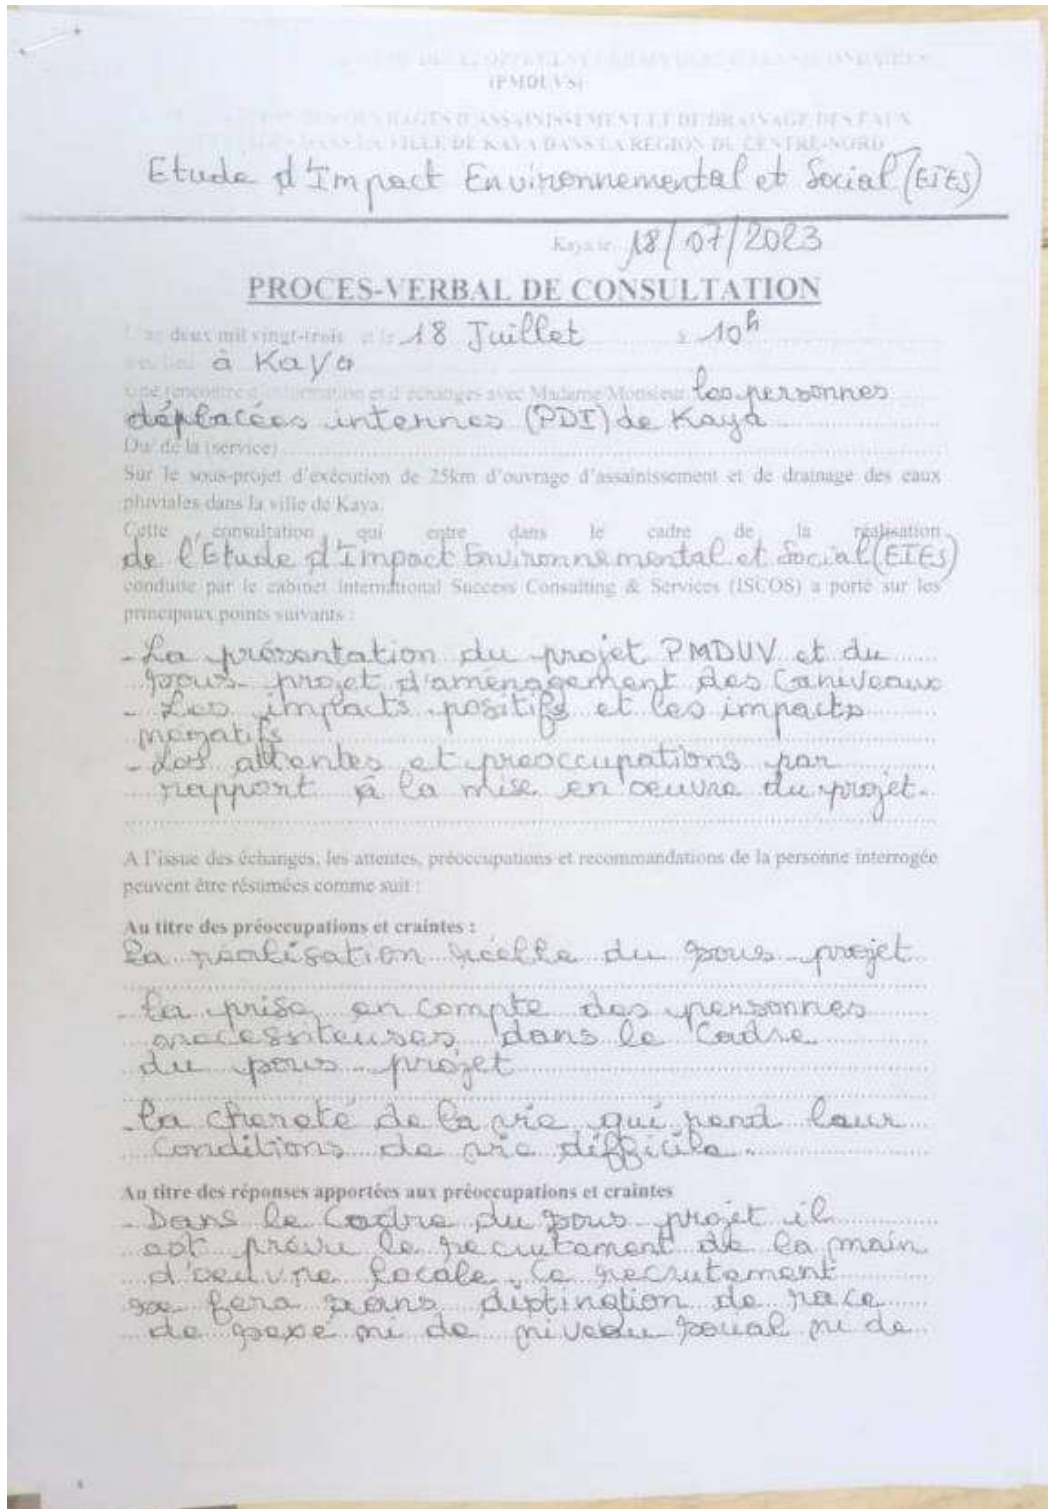 DE DEVELOPPEMENT URBAIN DES VILLES SECONDAIRES
(PMDUVS)
OUVRAGES D'ASSAINISSEMENT ET DE DRAINAGE DES EAUX
DANS LA VILLE DE KAYA DANS LA REGION DU CENTRE-NORD
Etude d'Impact Environnemental et Social (EIES)
Kaya le 18/07/2023
PROCES-VERBAL DE CONSULTATION
L'an deux mil vingt-trois et le 18 Juillet à 10h
a eu lieu à Kaya
Une rencontre d'information et d'échanges avec Madame Monsieur les personnes
déplacées internes (PDI) de Kaya
Du/ de la (service)
Sur le sous-projet d'exécution de 25km d'ouvrage d'assainissement et de drainage des eaux
pluviales dans la ville de Kaya.
Cette consultation qui entre dans le cadre de la réalisation
de l'Etude d'Impact Environnemental et Social (EIES)
conduite par le cabinet International Success Consulting & Services (ISCOS) a porté sur les
principaux points suivants :
- La présentation du projet PMDUV et du
sous-projet d'aménagement des Caniveaux
- Les impacts positifs et les impacts
négatifs
- Les attentes et preoccupations par
rapport à la mise en oeuvre du projet.
A l'issue des échanges, les attentes, préoccupations et recommandations de la personne interrogée
peuvent être résumées comme suit :
Au titre des préoccupations et craintes :
La réalisation réelle du sous-projet
- La prise en compte des personnes
necessiteuses dans le Cadre
du sous-projet
- La chereté de la vie qui rend leur
Conditions de vie difficile.
Au titre des réponses apportées aux préoccupations et craintes
- Dans le Cadre du sous-projet il
est prévu le recrutement de la main
d'oeuvre locale. Ce recrutement
se fera sans distinction de race
de sexe ni de niveau social ni de